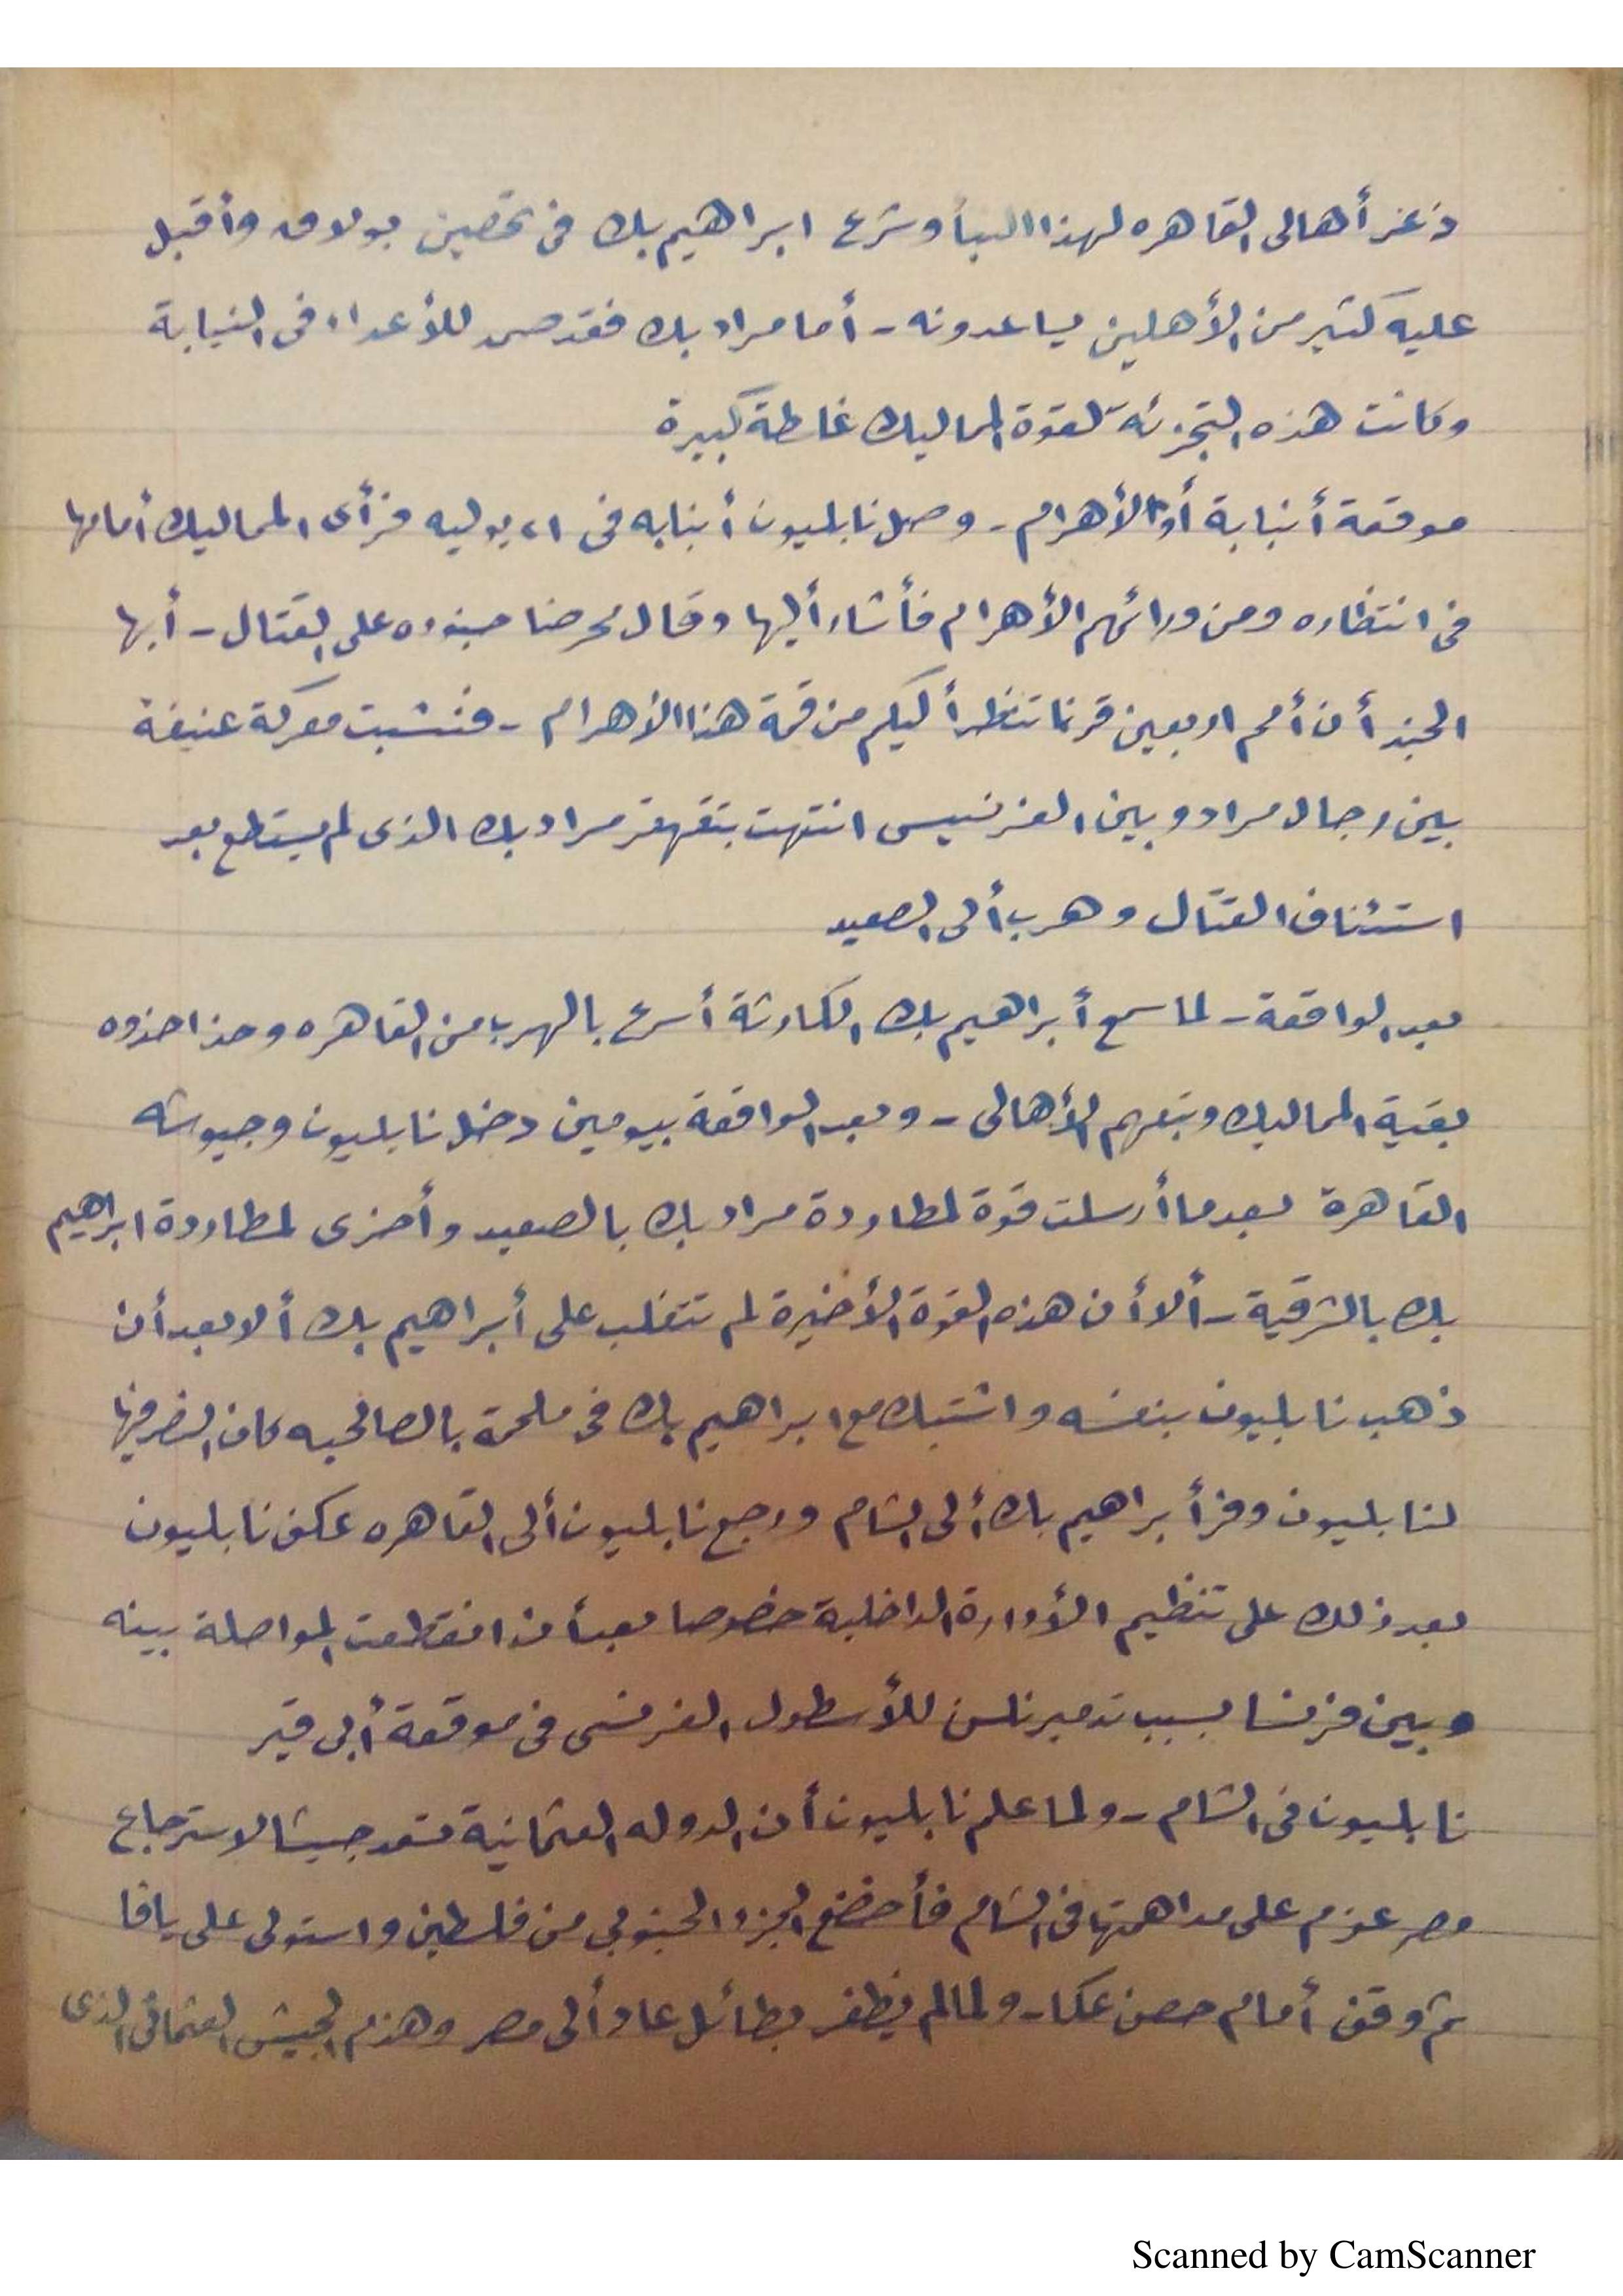 ذعر أهالى القاهره لهذا النبأ وشرع ابراهيم بك فى تحصين بولاق وأقبل
عليه كثير من الأهلين يساعدونه - أما مراد بك فقد صمد للأعداء فى
وكانت هذه التجزئة لقوة المماليك غلطة كبيرة
موقعة أنبابة أو الأهرام - وصل نابليون أنبابه فى ٢١ يوليه فرأى المماليك أمامها
فى انتظاره ومن ورائهم الأهرام فأشار أليها وقال محرضا جنوده على القتال - أيها
الجند أن أمم اربعين قرنا تنظر أليكم من قمة هذا الأهرام - فنشبت معركة عنيفة
بين رجال مراد وبين الفرنسيس انتهت بتقهقر مراد بك الذى لم يستطع بعد
استئناف القتال وهرب ألى الصعيد
بعد الواقعة - لما سمع أبراهيم بك الكارثة أسرع بالهرب من القاهره وحذا حذوه
بقية المماليك وتبعهم الأهالى - وبعد الواقعة بيومين دخل نابليون وجيوشه
القاهرة بعدما أرسلت قوة لمطاردة مراد بك بالصعيد وأخرى لمطاردة ابراهيم
بك بالشرقية - ألا أن هذه القوة الأخيرة لم تتغلب على أبراهيم بك ألا بعد أن
ذهب نابليون بنفسه واشتبك مع ابراهيم بك فى ملحمة بالصالحيه كان النصر فيها
لنابليون وفر أبراهيم بك ألى الشام ورجع نابليون ألى القاهره عكف نابليون
بعد ذلك على تنظيم الأدارة الداخلية خصوصا بعد أن انقطعت المواصلة بينه
وبين فرنسا بسبب تدمير نلسن للأسطول الفرنسى فى موقعة أبى قير
نابليون فى الشام - ولما علم نابليون أن الدوله العثمانية تعد جيشا لاسترجاع
مصر عزم على مداهمتها فى الشام فأخضع الجزء الجنوبى من فلسطين واستولى على يافا
ثم وقف أمام حصن عكا - ولما لم يظفر بطائل عاد ألى مصر وهزم الجيش العثمانى الذى
Scanned by CamScanner